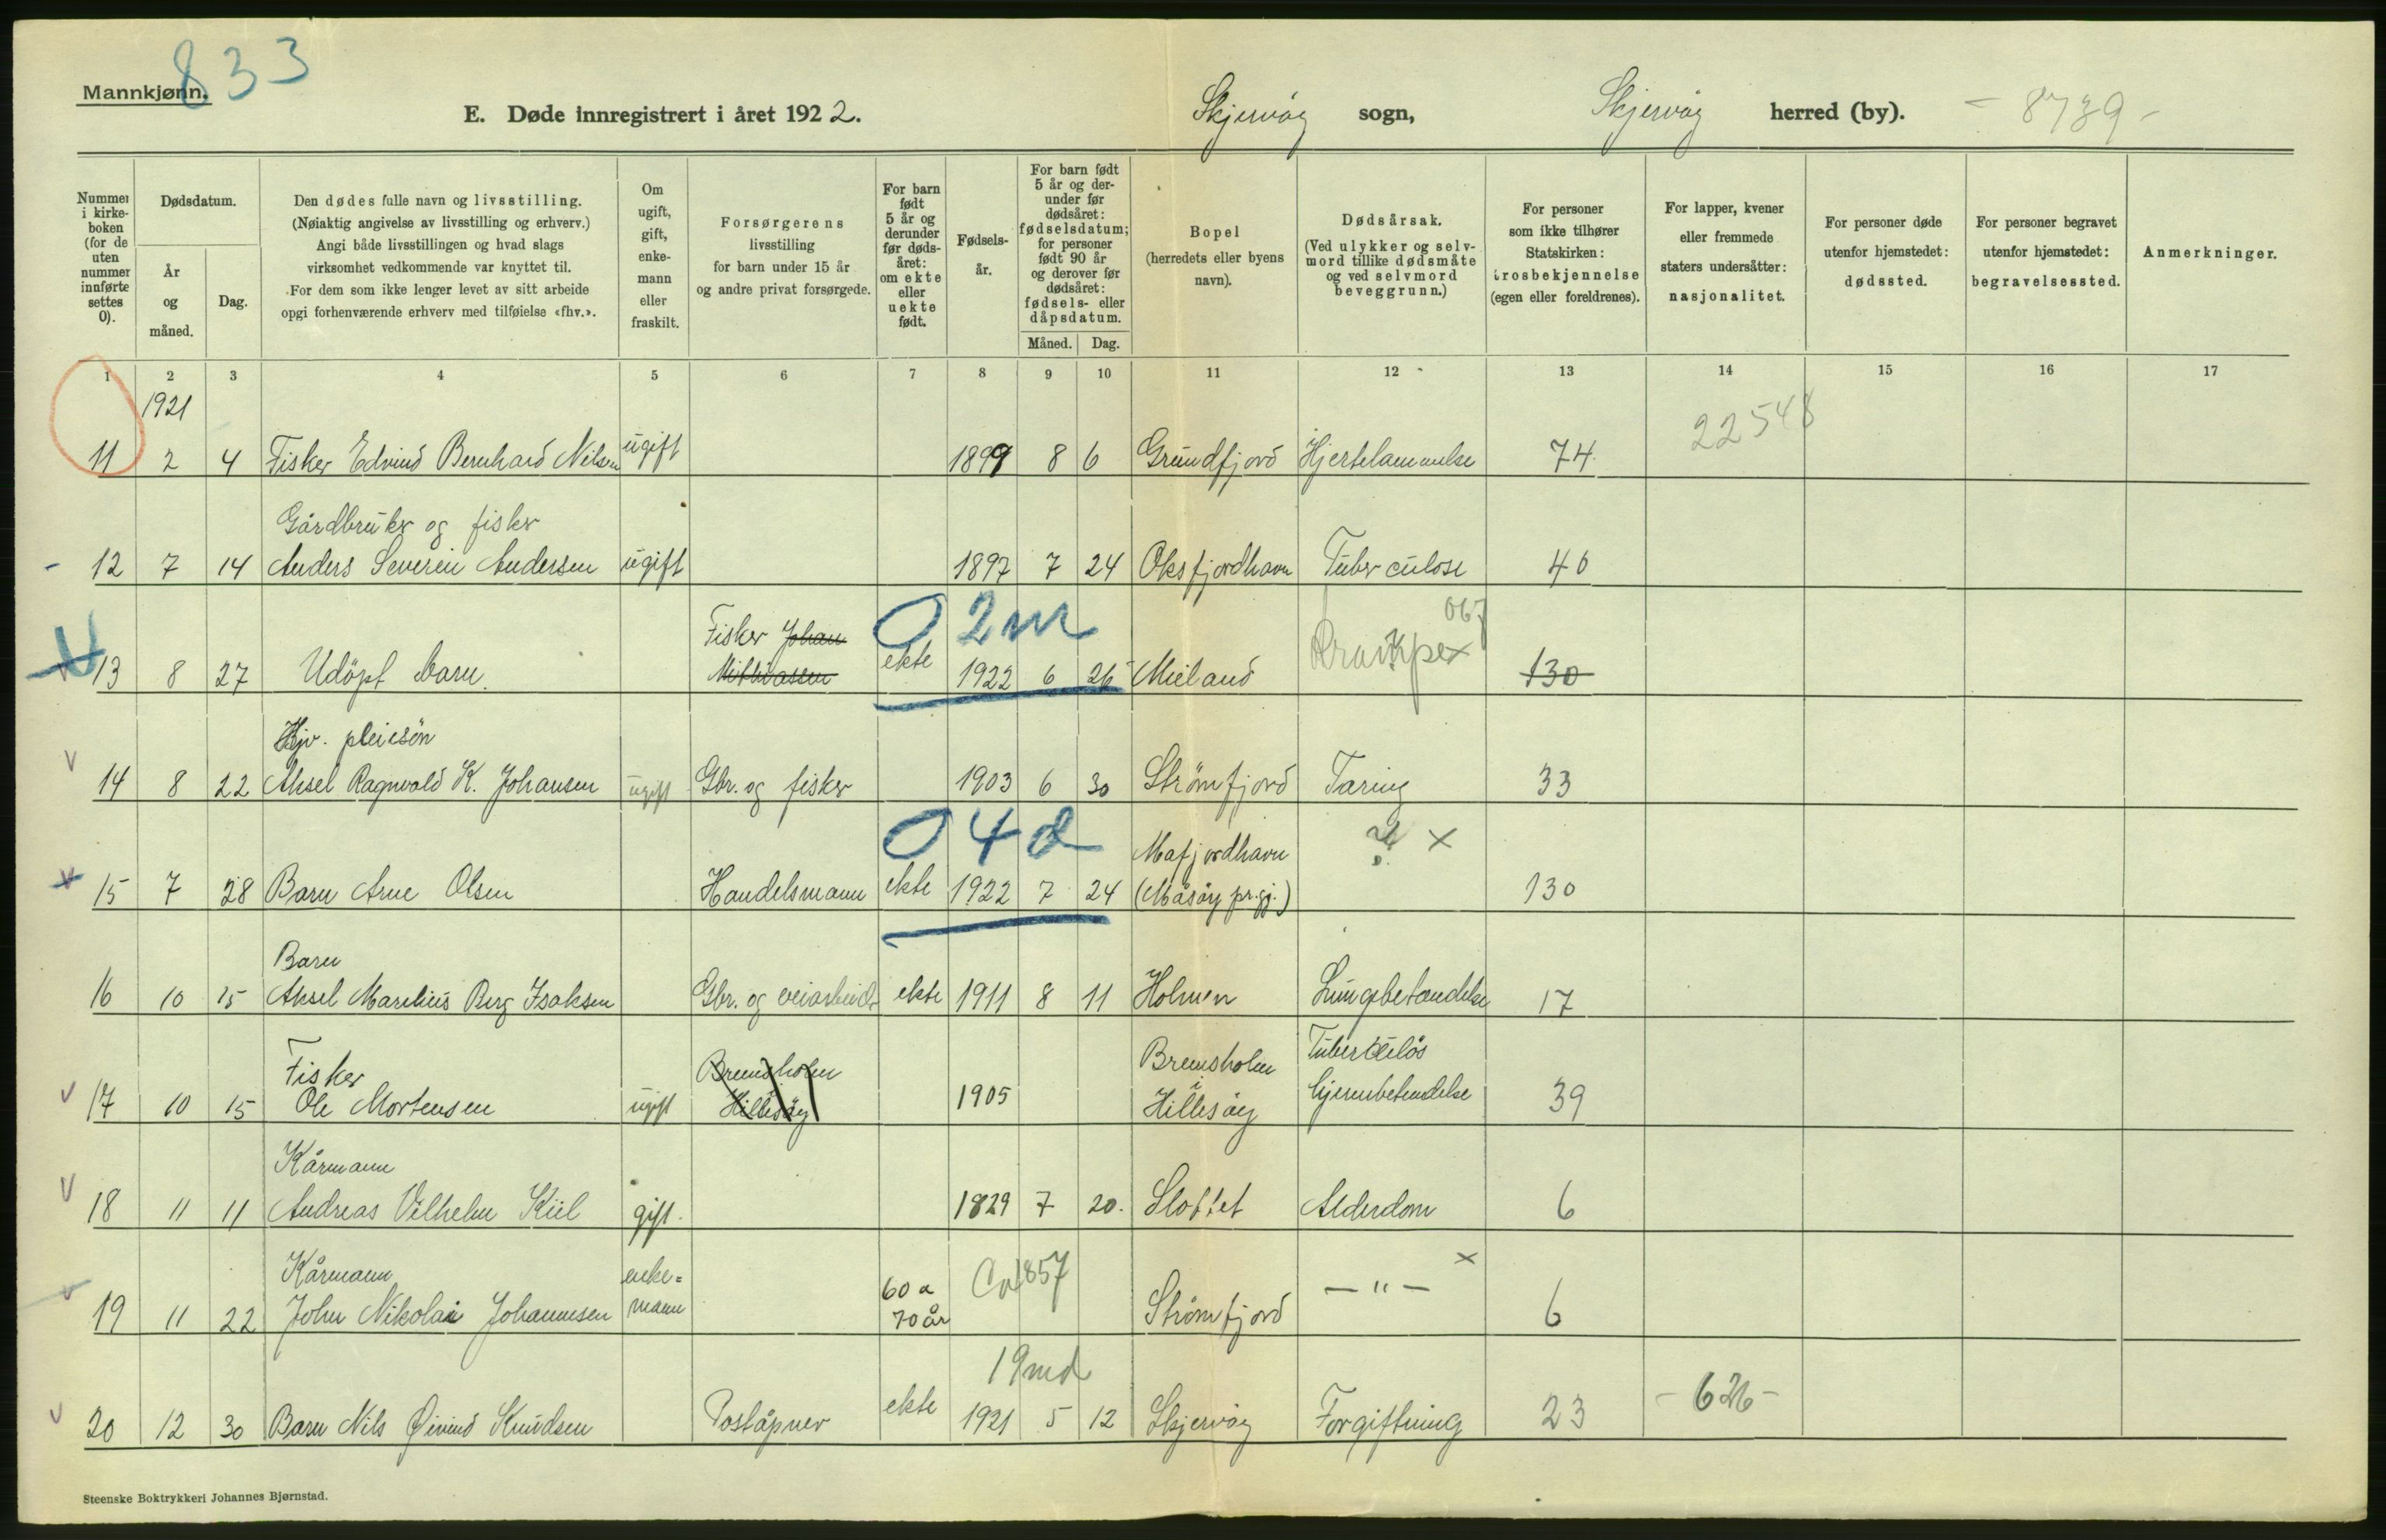 Mannkjønn.
833
E. Døde innregistrert i året 1922.
Skjervøy sogn,
Skjervøy herred (by).
- 8739 -
Nummer i kirkeboken (for de uten nummer innførte settes 0).
Dødsdatum.
År og måned.
Dag.
Den dødes fulle navn og livsstilling.
(Nøiaktig angivelse av livsstilling og erhverv.)
Angi både livsstillingen og hvad slags
virksomhet vedkommende var knyttet til.
For dem som ikke lenger levet av sitt arbeide
opgi forhenværende erhverv med tilføielse «fhv.».
Om ugift, gift, enkemann eller fraskilt.
Forsørgerens
livsstilling
for barn under 15 år
og andre privat forsørgede.
For barn født 5 år og derunder før dødsåret: om ekte eller uekte født.
Fødselsår.
For barn født 5 år og derunder før dødsåret: fødselsdatum; for personer født 90 år og derover før dødsåret: fødsels- eller dåpsdatum.
Måned. Dag.
Bopel
(herredets eller byens
navn).
Dødsårsak.
(Ved ulykker og selvmord tillike dødsmåte og ved selvmord beveggrunn.)
For personer
som ikke tilhører
Statskirken:
trosbekjennelse
(egen eller foreldrenes).
For lapper, kvener
eller fremmede
staters undersåtter:
nasjonalitet.
For personer døde
utenfor hjemstedet:
dødssted.
For personer begravet
utenfor hjemstedet:
begravelsessted.
Anmerkninger.
1 2 3 4 5 6 7 8 9 10 11 12 13 14 15 16 17
1921
22548
11 2 4 Fisker Edvind Bernhard Nilsen ugift 1899 8 6 Grundfjord Hjertelammelse 74
Gårdbruker og fisker
12 7 14 Anders Severin Andersen ugift 1897 7 24 Oksfjordhavn Tuberculose 40
Fisker Johan 0 2m
13 8 27 Udöpt barn. ekte 1922 6 26 Mieland 130
Hjv. pleiesön
14 8 22 Aksel Ragnvald K. Johansen ugift Gbr. og fisker 1903 6 30 Strömfjord Taring 33
0 4 d
Mafjordhavn x
15 7 28 Barn Arne Olsen Handelsmann ekte 1922 7 24 (Måsöy pr.gj.) 130
Barn
16 10 15 Aksel Marelius Berg Isaksen Gbr. og veiarbeider ekte 1911 8 11 Holmen Lungebetændelse 17
Fisker Bremsholm Bremsholm Tuberculös
17 10 15 Ole Mortensen ugift Hillesöy 1905 i Hillesöy hjernebetendelse 39
Kårmann
18 11 11 Andreas Vilhelm Kiil gift. 1829 7 20. Slottet Alderdom 6
Kårmann enke= 60 a Ca 1857 x
19 11 22 John Nikolai Johannesen mann 70 år Strömfjord — " — 6
19 md
20 12 30 Barn Nils Øivind Knudsen Poståpner ekte 1921 5 12 Skjervøy Forgiftning 23 - 626 -
Steenske Boktrykkeri Johannes Bjørnstad.